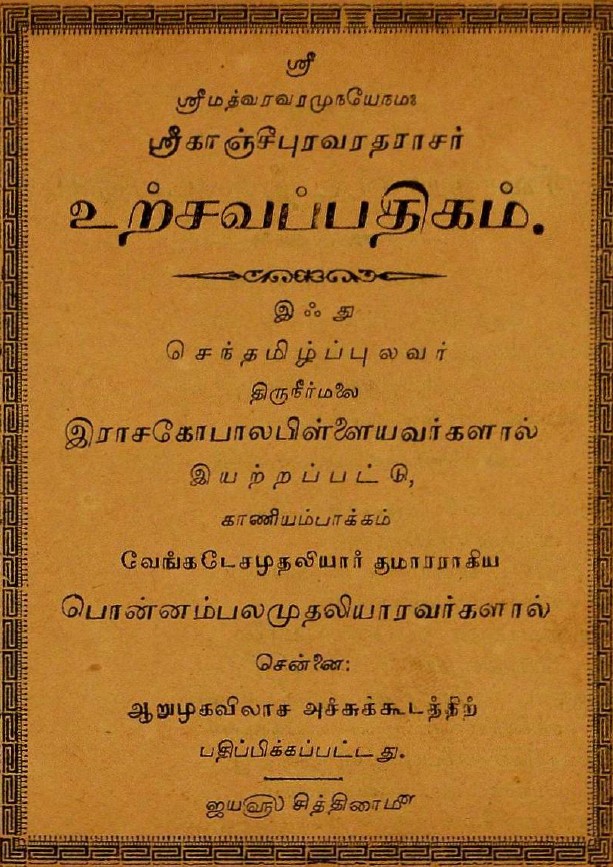 ஸ்ரீ
ஸ்ரீமத்வரவரமுநயேநமஃ
ஸ்ரீகாஞ்சீபுரவரதராசர்
உற்சவப்பதிகம்.
இஃது
செந்தமிழ்ப்புலவர்
திருநீர்மலை
இராசகோபாலபிள்ளையவர்களால்
இயற்றப்பட்டு,
காணியம்பாக்கம்
வேங்கடேசமுதலியார் குமாரராகிய
பொன்னம்பலமுதலியாரவர்களால்
சென்னை:
ஆறுமுகவிலாச அச்சுக்கூடத்திற்
பதிப்பிக்கப்பட்டது.